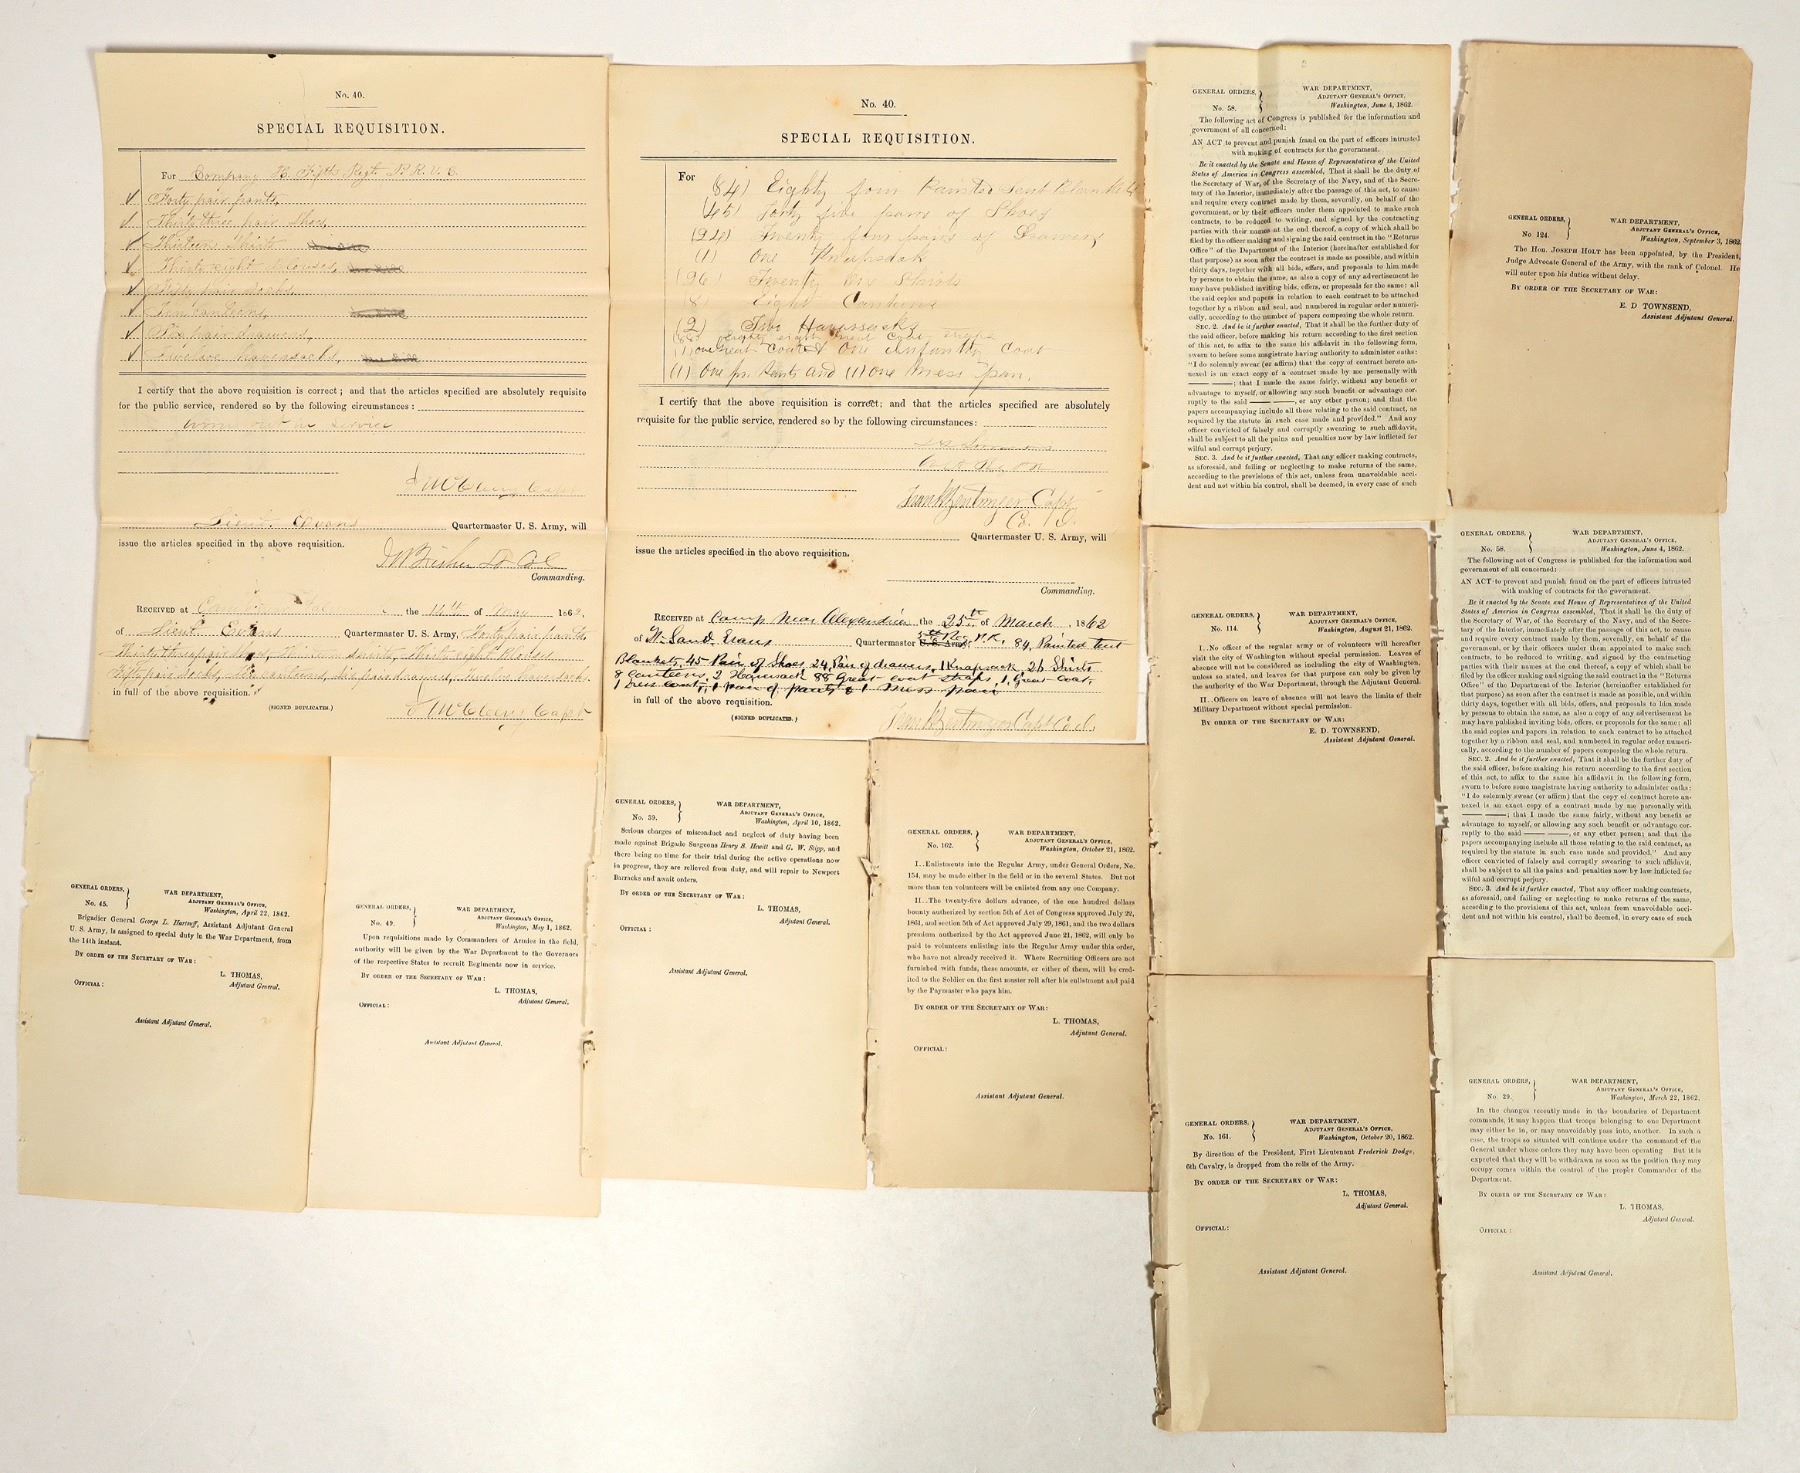 No. 40.
SPECIAL REQUISITION.
For Company B. Fifth Regt. P. R. V. C.
Forty pair pants,
Thirty three pair shoes,
Thirteen Shirts
Thirty eight Blouses,
Fifty pair socks,
Ten Canteens,
Six pair drawers,
Twelve Haversacks,
I certify that the above requisition is correct; and that the articles specified are absolutely requisite
for the public service, rendered so by the following circumstances:
worn out in service
Capt
Lieut. Evans Quartermaster U. S. Army, will
issue the articles specified in the above requisition.
J W Fisher Lt Col
Commanding.
RECEIVED at Camp the 14th of May 1862,
of Lieut Evans Quartermaster U. S. Army, Forty pair pants
Thirty three pair shoes, thirteen shirts, thirty eight Blouses
Fifty pair socks, ten canteens, six pair drawers, twelve haversacks.
in full of the above requisition.
(SIGNED DUPLICATES.)
Capt
No. 40.
SPECIAL REQUISITION.
For (84) Eighty four Painted tent Blankets
(45) Forty five pairs of Shoes
(24) Twenty four pairs of Drawers
(1) One Knapsack
(26) Twenty Six Shirts
(8) Eight Canteens
(2) Two Haversacks
(88) Eighty eight great coat straps
(1) one Great Coat & One Infantry Coat
(1) One pr. Pants and (1) one mess pan.
I certify that the above requisition is correct; and that the articles specified are absolutely
requisite for the public service, rendered so by the following circumstances:
Frank Zentmyer Capt
Co. I.
Quartermaster U. S. Army, will
issue the articles specified in the above requisition.
Commanding.
RECEIVED at Camp Near Alexandria the 25th of March, 1862
of Lt. Saml Evans Quartermaster U.S. Army, 5th Reg. P. R. 84, Painted tent
Blankets, 45 Pair of Shoes, 24, Pair of drawers, 1 Knapsack, 26 Shirts
8 Canteens, 2 Haversack 88 Great coat straps, 1, Great Coat,
1 Dress Coat, 1 pair of pants & 1 Mess pan
in full of the above requisition.
(SIGNED DUPLICATES.)
Frank Zentmyer Capt Co I.
GENERAL ORDERS,
No. 58.
WAR DEPARTMENT,
ADJUTANT GENERAL'S OFFICE,
Washington, June 4, 1862.
The following act of Congress is published for the information and
government of all concerned:
AN ACT to prevent and punish fraud on the part of officers intrusted
with making of contracts for the government.
Be it enacted by the Senate and House of Representatives of the United
States of America in Congress assembled, That it shall be the duty of
the Secretary of War, of the Secretary of the Navy, and of the Secre-
tary of the Interior, immediately after the passage of this act, to cause
and require every contract made by them, severally, on behalf of the
government, or by their officers under them appointed to make such
contracts, to be reduced to writing, and signed by the contracting
parties with their names at the end thereof, a copy of which shall be
filed by the officer making and signing the said contract in the "Returns
Office" of the Department of the Interior (hereinafter established for
that purpose) as soon after the contract is made as possible, and within
thirty days, together with all bids, offers, and proposals to him made
by persons to obtain the same, as also a copy of any advertisement he
may have published inviting bids, offers, or proposals for the same: all
the said copies and papers in relation to each contract to be attached
together by a ribbon and seal, and numbered in regular order numeri-
cally, according to the number of papers composing the whole return.
SEC. 2. And be it further enacted, That it shall be the further duty of
the said officer, before making his return according to the first section
of this act, to affix to the same his affidavit in the following form,
sworn to before some magistrate having authority to administer oaths:
"I do solemnly swear (or affirm) that the copy of contract hereto an-
nexed is an exact copy of a contract made by me personally with
—— ——; that I made the same fairly, without any benefit or
advantage to myself, or allowing any such benefit or advantage cor-
ruptly to the said —— ——, or any other person; and that the
papers accompanying include all those relating to the said contract, as
required by the statute in such case made and provided." And any
officer convicted of falsely and corruptly swearing to such affidavit,
shall be subject to all the pains and penalties now by law inflicted for
wilful and corrupt perjury.
SEC. 3. And be it further enacted, That any officer making contracts,
as aforesaid, and failing or neglecting to make returns of the same,
according to the provisions of this act, unless from unavoidable acci-
dent and not within his control, shall be deemed, in every case of such
GENERAL ORDERS,
No. 124.
WAR DEPARTMENT,
ADJUTANT GENERAL'S OFFICE,
Washington, September 3, 1862.
The HON. JOSEPH HOLT has been appointed, by the President,
Judge Advocate General of the Army, with the rank of Colonel. He
will enter upon his duties without delay.
BY ORDER OF THE SECRETARY OF WAR:
E. D TOWNSEND,
Assistant Adjutant General.
GENERAL ORDERS,
No. 114.
WAR DEPARTMENT,
ADJUTANT GENERAL'S OFFICE,
Washington, August 21, 1862.
I..No officer of the regular army or of volunteers will hereafter
visit the city of Washington without special permission. Leaves of
absence will not be considered as including the city of Washington,
unless so stated, and leaves for that purpose can only be given by
the authority of the War Department, through the Adjutant General.
II..Officers on leave of absence will not leave the limits of their
Military Department without special permission.
BY ORDER OF THE SECRETARY OF WAR:
E. D. TOWNSEND,
Assistant Adjutant General.
GENERAL ORDERS,
No. 58.
WAR DEPARTMENT,
ADJUTANT GENERAL'S OFFICE,
Washington, June 4, 1862.
The following act of Congress is published for the information and
government of all concerned:
AN ACT to prevent and punish fraud on the part of officers intrusted
with making of contracts for the government.
Be it enacted by the Senate and House of Representatives of the United
States of America in Congress assembled, That it shall be the duty of
the Secretary of War, of the Secretary of the Navy, and of the Secre-
tary of the Interior, immediately after the passage of this act, to cause
and require every contract made by them, severally, on behalf of the
government, or by their officers under them appointed to make such
contracts, to be reduced to writing, and signed by the contracting
parties with their names at the end thereof, a copy of which shall be
filed by the officer making and signing the said contract in the "Returns
Office" of the Department of the Interior (hereinafter established for
that purpose) as soon after the contract is made as possible, and within
thirty days, together with all bids, offers, and proposals to him made
by persons to obtain the same, as also a copy of any advertisement he
may have published inviting bids, offers, or proposals for the same: all
the said copies and papers in relation to each contract to be attached
together by a ribbon and seal, and numbered in regular order numeri-
cally, according to the number of papers composing the whole return.
SEC. 2. And be it further enacted, That it shall be the further duty of
the said officer, before making his return according to the first section
of this act, to affix to the same his affidavit in the following form,
sworn to before some magistrate having authority to administer oaths:
"I do solemnly swear (or affirm) that the copy of contract hereto an-
nexed is an exact copy of a contract made by me personally with
—— ——; that I made the same fairly, without any benefit or
advantage to myself, or allowing any such benefit or advantage cor-
ruptly to the said —— ——, or any other person; and that the
papers accompanying include all those relating to the said contract, as
required by the statute in such case made and provided." And any
officer convicted of falsely and corruptly swearing to such affidavit,
shall be subject to all the pains and penalties now by law inflicted for
wilful and corrupt perjury.
SEC. 3. And be it further enacted, That any officer making contracts,
as aforesaid, and failing or neglecting to make returns of the same,
according to the provisions of this act, unless from unavoidable acci-
dent and not within his control, shall be deemed, in every case of such
GENERAL ORDERS,
No. 45.
WAR DEPARTMENT,
ADJUTANT GENERAL'S OFFICE,
Washington, April 22, 1862.
Brigadier General George L. Hartsuff, Assistant Adjutant General
U. S. Army, is assigned to special duty in the War Department, from
the 14th instant.
BY ORDER OF THE SECRETARY OF WAR:
L. THOMAS,
Adjutant General.
OFFICIAL:
Assistant Adjutant General.
GENERAL ORDERS,
No. 49.
WAR DEPARTMENT,
ADJUTANT GENERAL'S OFFICE,
Washington, May 1, 1862.
Upon requisitions made by Commanders of Armies in the field,
authority will be given by the War Department to the Governors
of the respective States to recruit Regiments now in service.
BY ORDER OF THE SECRETARY OF WAR:
L. THOMAS,
Adjutant General.
OFFICIAL:
Assistant Adjutant General.
GENERAL ORDERS,
No. 39.
WAR DEPARTMENT,
ADJUTANT GENERAL'S OFFICE,
Washington, April 10, 1862.
Serious charges of misconduct and neglect of duty having been
made against Brigade Surgeons Henry S. Hewitt and G. W. Stipp, and
there being no time for their trial during the active operations now
in progress, they are relieved from duty, and will repair to Newport
Barracks and await orders.
BY ORDER OF THE SECRETARY OF WAR:
L. THOMAS,
Adjutant General.
OFFICIAL:
Assistant Adjutant General.
GENERAL ORDERS,
No. 162.
WAR DEPARTMENT,
ADJUTANT GENERAL'S OFFICE,
Washington, October 21, 1862.
I..Enlistments into the Regular Army, under General Orders, No.
154, may be made either in the field or in the several States. But not
more than ten volunteers will be enlisted from any one Company.
II..The twenty-five dollars advance, of the one hundred dollars
bounty authorized by section 5th of Act of Congress approved July 22,
1861, and section 5th of Act approved July 29, 1861, and the two dollars
premium authorized by the Act approved June 21, 1862, will only be
paid to volunteers enlisting into the Regular Army under this order,
who have not already received it. Where Recruiting Officers are not
furnished with funds, these amounts, or either of them, will be cred-
ited to the Soldier on the first muster roll after his enlistment and paid
by the Paymaster who pays him.
BY ORDER OF THE SECRETARY OF WAR:
L. THOMAS,
Adjutant General.
OFFICIAL:
Assistant Adjutant General.
GENERAL ORDERS,
No. 161.
WAR DEPARTMENT,
ADJUTANT GENERAL'S OFFICE,
Washington, October 20, 1862.
By direction of the President, First Lieutenant Frederick Dodge,
6th Cavalry, is dropped from the rolls of the Army.
BY ORDER OF THE SECRETARY OF WAR:
L. THOMAS,
Adjutant General.
OFFICIAL:
Assistant Adjutant General.
GENERAL ORDERS,
No. 29.
WAR DEPARTMENT,
ADJUTANT GENERAL'S OFFICE,
Washington, March 22, 1862.
In the changes recently made in the boundaries of Department
commands, it may happen that troops belonging to one Department
may either be in, or may unavoidably pass into, another. In such a
case, the troops so situated will continue under the command of the
General under whose orders they may have been operating. But it is
expected that they will be withdrawn as soon as the position they may
occupy comes within the control of the proper Commander of the
Department.
BY ORDER OF THE SECRETARY OF WAR:
L. THOMAS,
Adjutant General.
OFFICIAL:
Assistant Adjutant General.